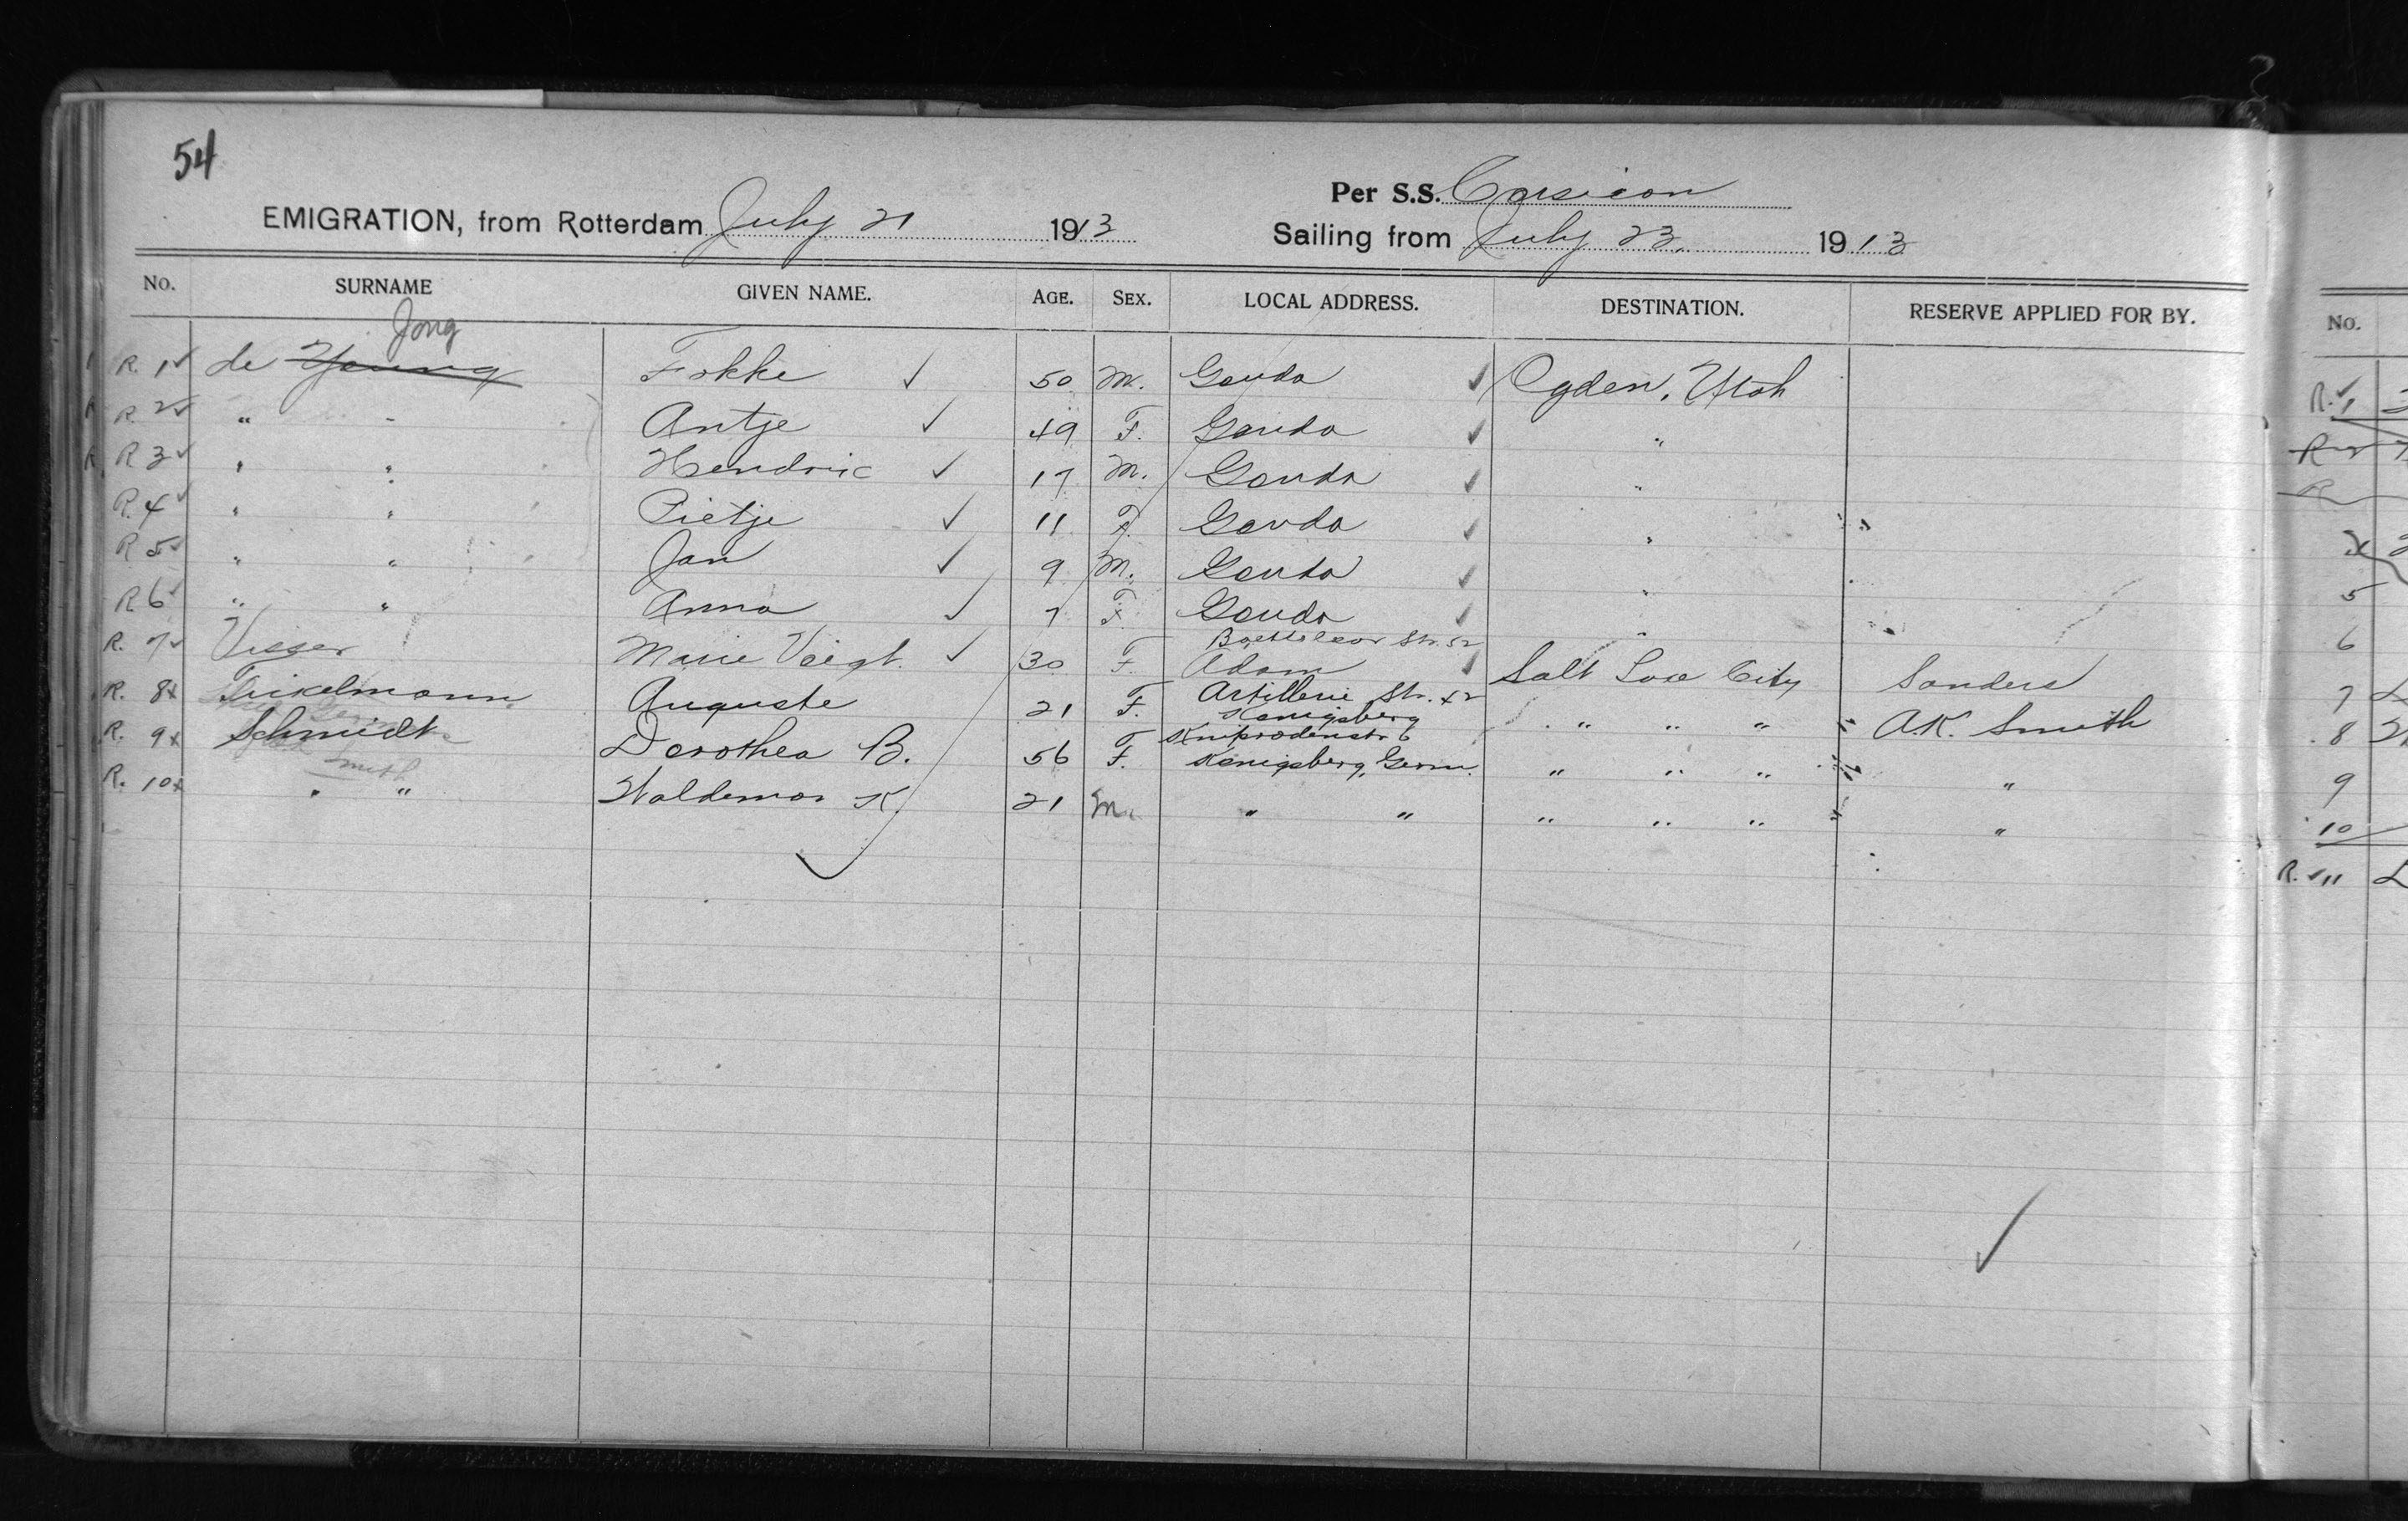 54
EMIGRATION, from Rotterdam July 21 1913
Per S.S. Corsican
Sailing from July 23. 1913
No. SURNAME GIVEN NAME. AGE. SEX. LOCAL ADDRESS. DESTINATION. RESERVE APPLIED FOR BY.
Jong
R. 1 ✓ de Young Fokke ✓ 50 M. Gouda ✓ Ogden, Utah
R. 2 ✓ " " Antje ✓ 49 F. Gouda ✓ "
R 3 ✓ " " Hendric ✓ 17 M. Gouda ✓ "
R. 4 ✓ " " Pietje ✓ 11 F. Gouda ✓ "
R 5 ✓ " " Jan ✓ 9 M. Gouda ✓ "
R 6 ✓ " " Anna ✓ 7 F. Gouda ✓ "
Str. 52
R. 7 ✓ Visser Marie Voigt. ✓ 30 F. Adam ✓ Salt Lake City Sanders
Artillerie Str. 42
R. 8x Auguste 21 F. Konigsberg " " " A.K. Smith
R. 9x Schmidt Dorothea B. 56 F. Konigsberg, Germ. " " " "
Smith
R. 10x " " Waldemar K. 21 M. " " " " " "
No.
R. ✓ 1
5
6
7
8
9
10
R. ✓ 11